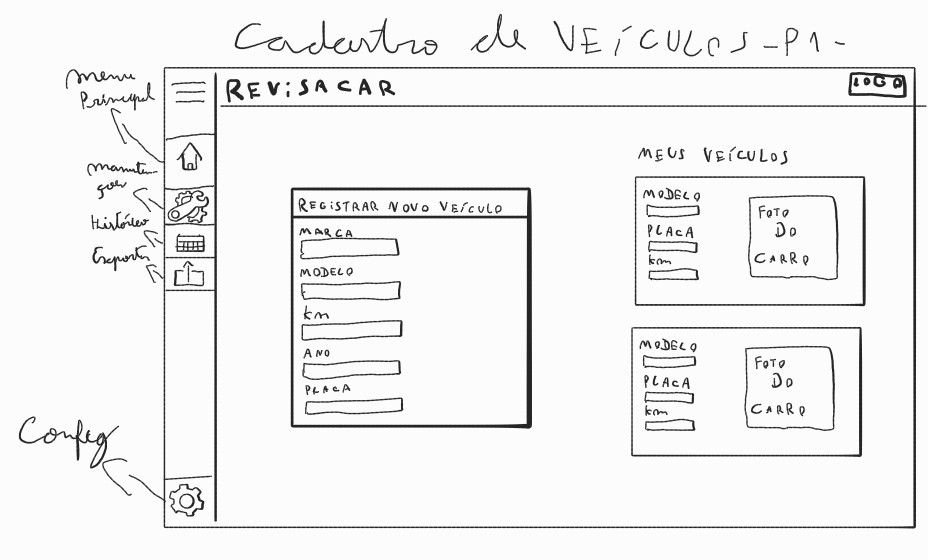 Cadastro de VEÍCULOS -P1-
Menu
Principal
REVISACAR
LOGO
Manuten
ções
Histórico
Exportar
Config
REGISTRAR NOVO VEÍCULO
MARCA
MODELO
km
ANO
PLACA
MEUS VEÍCULOS
MODELO
PLACA
km
FOTO
DO
CARRO
MODELO
PLACA
km
FOTO
DO
CARRO